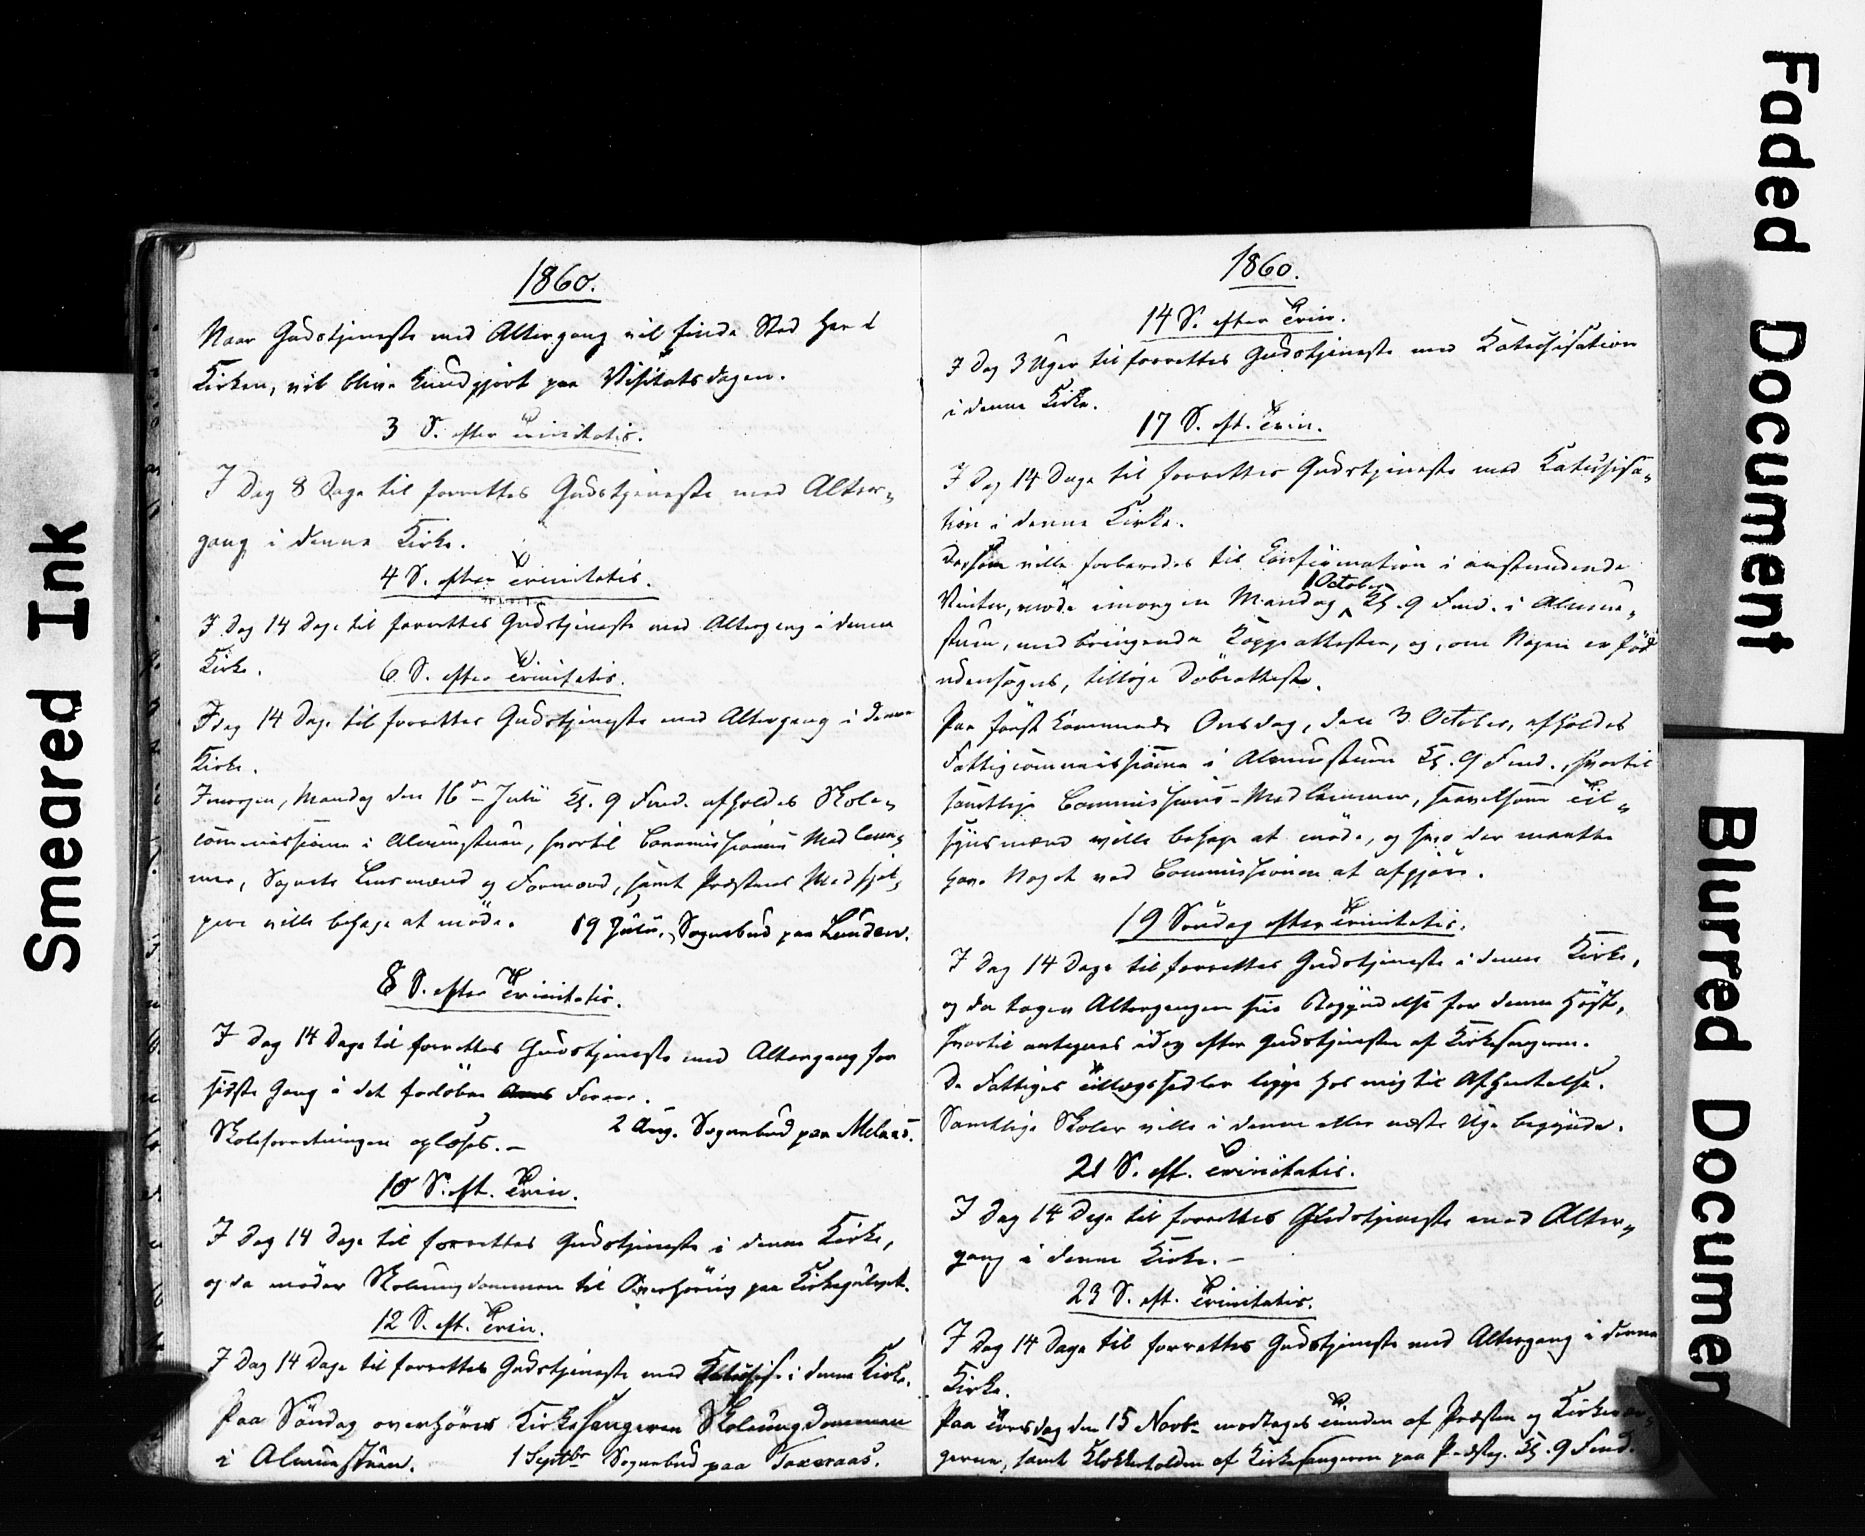 1860.
Naar Gudstjeneste med Altergang vil finde Sted her i
Kirken, vil blive kundgjort paa Visitatsdagen.
3 S. efter Trinitatis.
I Dag 8 Dage til forrettes Gudstjeneste med Alter-
gang i denne Kirke.
4 S. efter Trinitatis.
I Dag 14 Dage til forrettes Gudstjeneste med Altergang i denne
Kirke.
6 S. efter Trinitatis.
Idag 14 Dage til forrettes Gudstjeneste med Altergang i denne
Kirke.
Imorgen, Mandag den 16de Juli Kl. 9 Fmd. afholdes Skole-
commissionen i Almuestuen, hvortil Commissionens Medlem-
mer, Sognets Lensmænd og Formænd, samt Præstens Medhjæl-
pere ville behage at møde.
19 Juli, Sognebud paa Lunden.
8 S. efter Trinitatis.
I Dag 14 Dage til forrettes Gudstjeneste med Altergang for
sidste Gang i det forløbne Aars Foraar.
Skoleforretningen oplæses. —
2 Aug. Sognebud paa Melaas.
10 S. eft. Trin.
I Dag 14 Dage til forrettes Gudstjeneste i denne Kirke,
og da møder Skoleungdommen til Overhøring paa Kirkegulvet.
12 S. eft. Trin.
I Dag 14 Dage til forrettes Gudstjeneste med Katechis. i denne Kirke.
Paa Søndag overhører Kirkesangeren Skoleungdommen
i Almuestuen.
1 Septbr Sognebud paa
1860.
14 S. efter Trin.
I Dag 3 Uger til forrettes Gudstjeneste med Katechisation
i denne Kirke.
17 S. eft. Trin.
I Dag 14 Dage til forrettes Gudstjeneste med Katechisa-
tion i denne Kirke.
De, som ville forberedes til Confirmation i anstundende
Vinter, møde imorgen Mandag 1 October Kl. 9 Fmd. i Almue-
stuen, medbringende Koppeattester, og, om Nogen er fød
udensogns, tillige Døbeatteste.
Paa førstkommende Onsdag, den 3 October, afholdes
Fattigcommissionen i Almuestuen Kl. 9 Fmd., hvortil
samtlige Commissions-Medlemmer, saavelsom Til-
synsmænd ville behage at møde, og hvo der maatte
have Noget ved Commissionen at afgjøre.
19 Søndag efter Trinitatis.
I Dag 14 Dage til forrettes Gudstjeneste i denne Kirke,
og da tager Altergangen sin Begyndelse for denne Høst,
hvortil antegnes idag efter Gudstjenesten af Kirkesangeren.
De Fattiges Tillægssedler ligge hos mig til Afhentelse.
Samtlige Skoler ville i denne eller næste Uge begynde.
21 S. eft. Trinitatis.
I Dag 14 Dage til forrettes Gudstjeneste med Alter-
gang i denne Kirke. —
23 S. eft. Trinitatis.
I Dag 14 Dage til forrettes Gudstjeneste med Altergang i denne
Kirke.
Paa Torsdag den 15 Novbr modtages Tienden af Præsten og Kirkevær-
gerne, samt Klokkertolden af Kirkesangeren paa Præstegd. Kl. 9 Fmd.
Smeared Ink
Faded Document
Blurred Documen